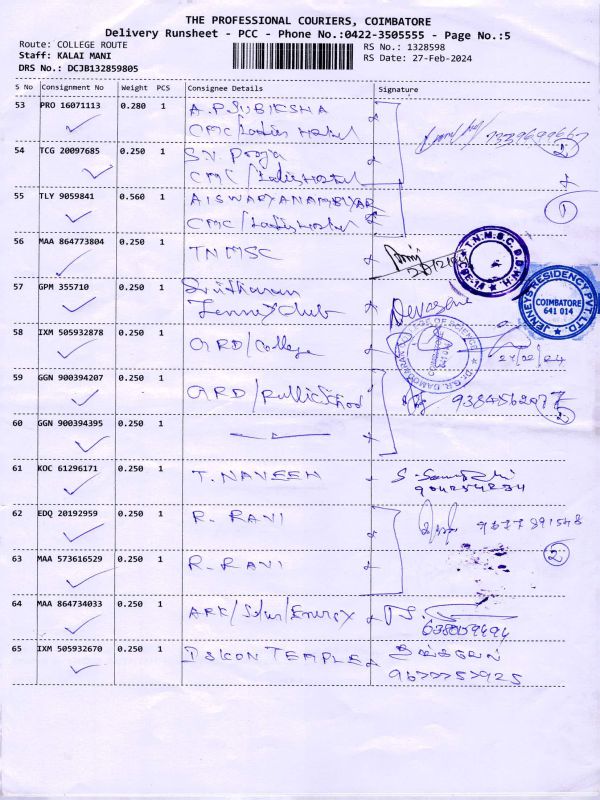 THE PROFESSIONAL COURIERS, COIMBATORE
Delivery Runsheet - PCC - Phone No.:0422-3505555 - Page No.:5
Route: COLLEGE ROUTE
RS No.: 1328598
Staff: KALAI MANI
RS Date: 27-Feb-2024
DRS No.: DCJB132859805
S No Consignment No Weight PCS Consignee Details Signature
53 PRO 16071113 0.280 1 A.P SUBIKSHA
CMC/Ladies Hostel
54 TCG 20097685 0.250 1 S.V. Pooja
CMC/Ladies Hostel
2
55 TLY 9059841 0.560 1 AISWARYA NAMBIYAR
CMC/Ladies Hostel
1
56 MAA 864773804 0.250 1 TNMSC
57 GPM 355710 0.250 1
Jenneys club
JENNEYS RESIDENCY PVT. LTD.
COIMBATORE
641 014
58 IXM 505932878 0.250 1 GRD/College
59 GGN 900394207 0.250 1 GRD/Public School
2
60 GGN 900394395 0.250 1
61 KOC 61296171 0.250 1 T. NAVEEN
62 EDQ 20192959 0.250 1 R. RANI
9677891548
2
63 MAA 573616529 0.250 1 R. RANI
64 MAA 864734033 0.250 1 ARK/Solar/Energy
65 IXM 505932670 0.250 1 ISKCON TEMPLE
9677757925